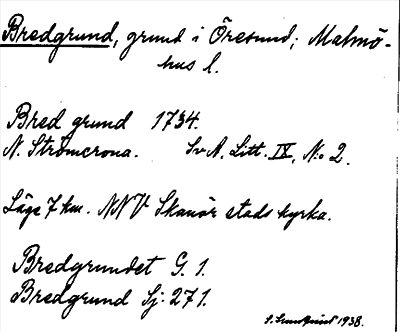 Bredgrund, grund i Öresund; Malmö-
hus l.
Bred grund 1734.
N. Strömcrona. Sv A. Litt. IV, No 2.
Läge 7 km. NNV Skanör stads kyrka.
Bredgrundet G. 1.
Bredgrund Sj. 271.
1938.